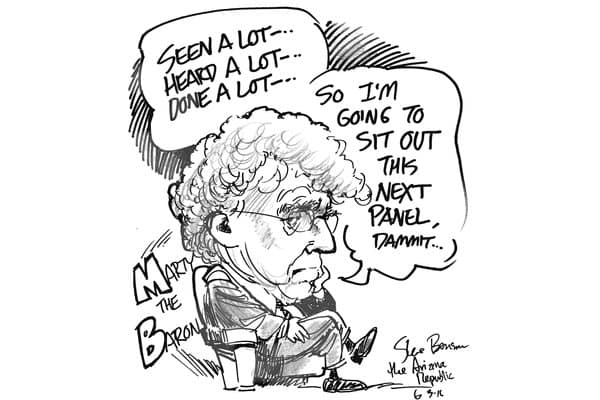 SEEN A LOT--..
HEARD A LOT--..
DONE A LOT--..
SO I'M
GOING TO
SIT OUT
THIS
NEXT
PANEL,
DAMMIT...
MARTY
THE
BARON
Steve Benson
the Arizona
Republic